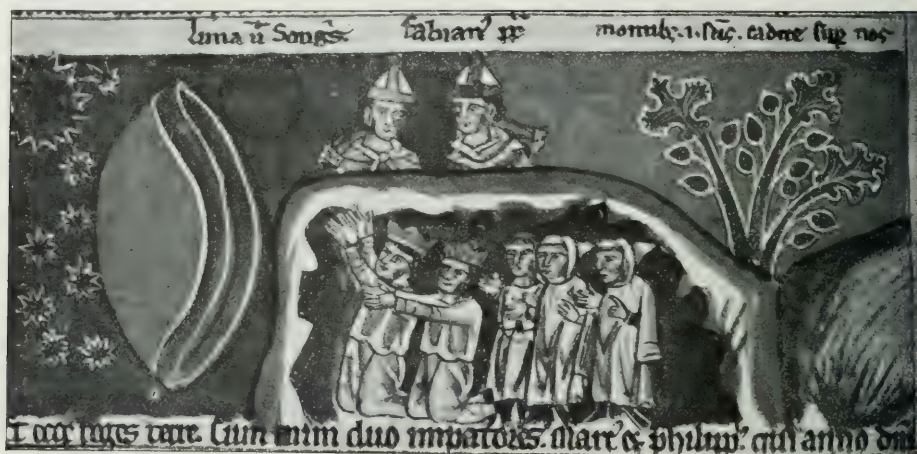 luna ū Sangͥs. fabianꝰ pp̄ montibꝫ .i. scīs. cadite sup nos
Et ecce reges terre. Cum enim duo imp̄atores. Marcꝰ & philippꝰ. qui anno dn̄i